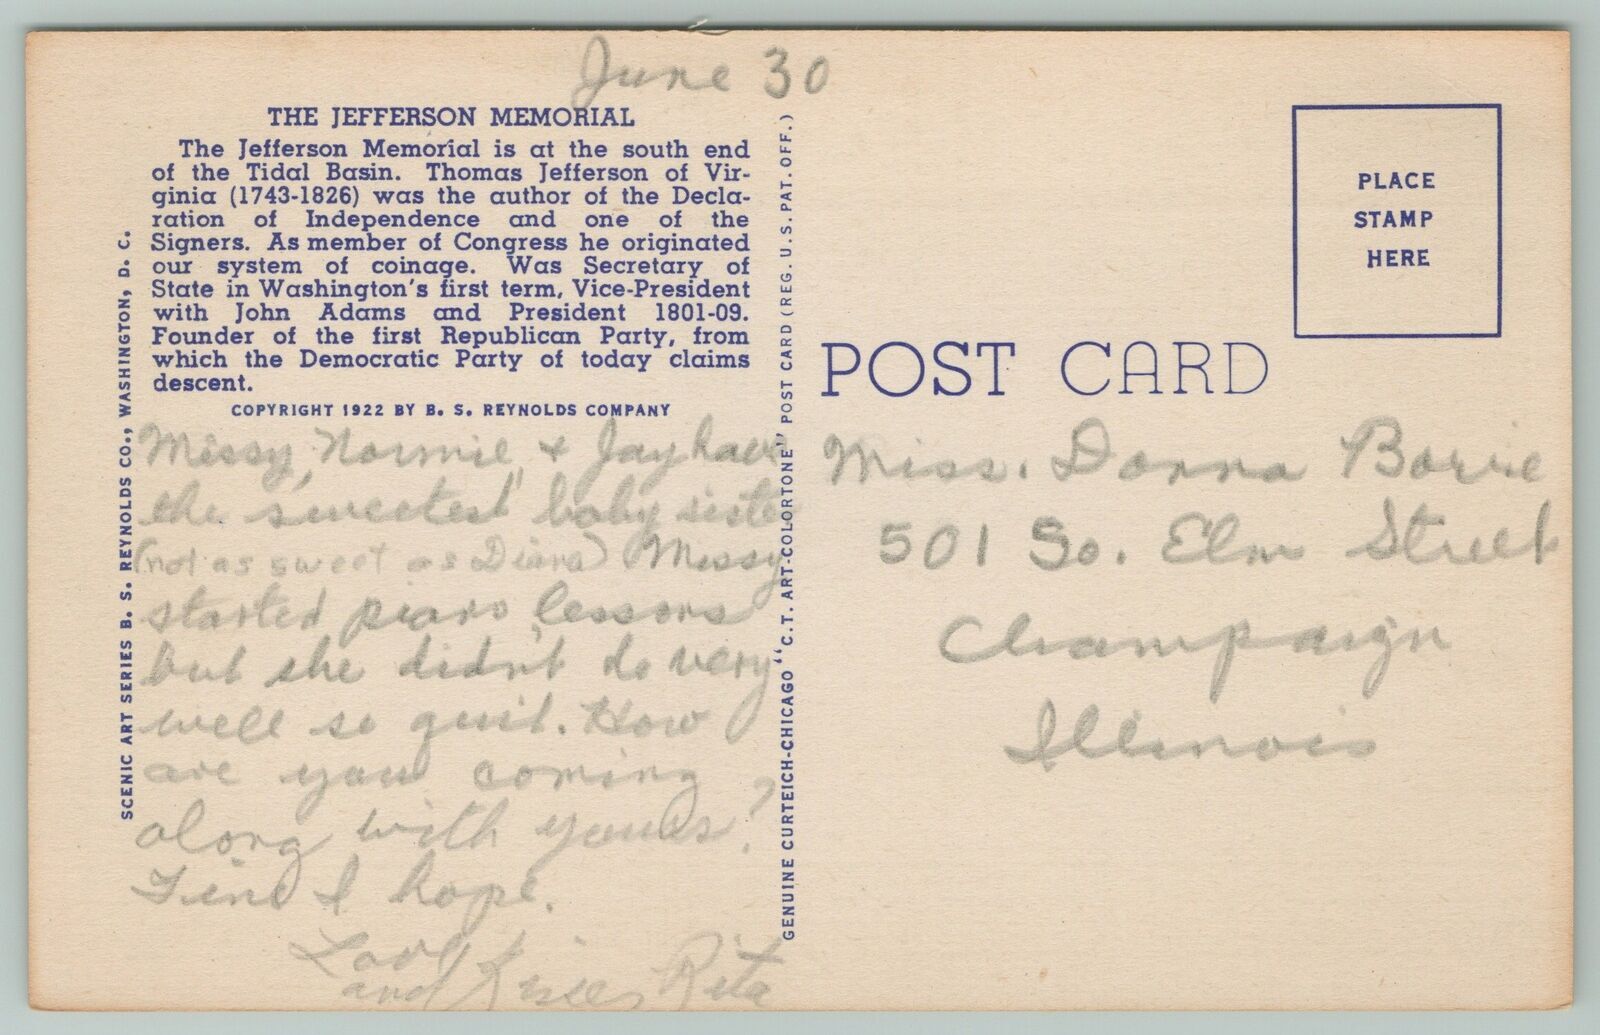 June 30
THE JEFFERSON MEMORIAL
The Jefferson Memorial is at the south end
of the Tidal Basin. Thomas Jefferson of Vir-
ginia (1743-1826) was the author of the Decla-
ration of Independence and one of the
Signers. As member of Congress he originated
our system of coinage. Was Secretary of
State in Washington's first term, Vice-President
with John Adams and President 1801-09.
Founder of the first Republican Party, from
which the Democratic Party of today claims
descent.
COPYRIGHT 1922 BY B. S. REYNOLDS COMPANY
SCENIC ART SERIES B. S. REYNOLDS CO., WASHINGTON, D. C.
Missy, Normie, & Jay have
the "sweetest" baby siste
(not as sweet as Diana) Missy
started piano lessons
but she didn't do very
well so quit. How
are you coming
along with yours?
Fine I hope.
Love
and Kisses Rita
GENUINE CURTEICH-CHICAGO "C.T. ART-COLORTONE" POST CARD (REG. U.S. PAT. OFF.)
PLACE
STAMP
HERE
POST CARD
Miss. Donna
501 So. Elm Street
Champaign
Illinois